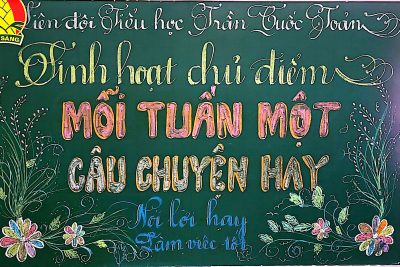 Liên đội Tiểu học Trần Quốc Toản
Sinh hoạt chủ điểm
MỖI TUẦN MỘT
CÂU CHUYỆN HAY
Nói lời hay
Làm việc tốt
SÀNG